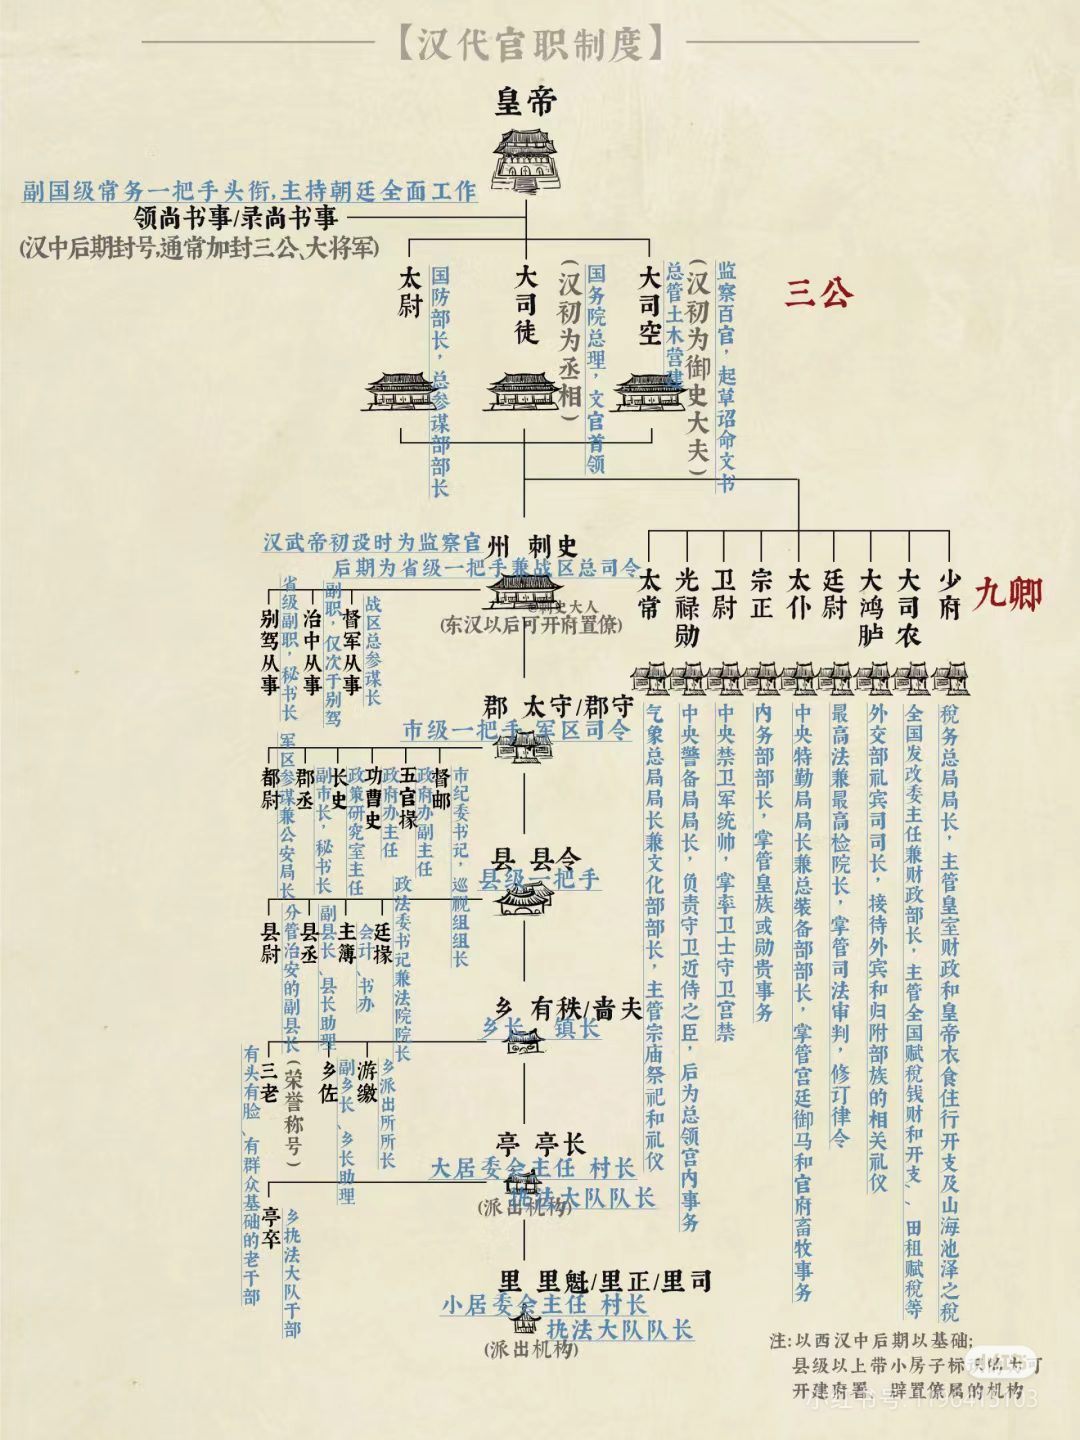 【汉代官职制度】
皇帝
副国级常务一把手头衔,主持朝廷全面工作
领尚书事/录尚书事
(汉中后期封号,通常加封三公、大将军)
太尉
国防部长，总参谋部部长
大司徒
(汉初为丞相)
国务院总理，文官首领
大司空
总管土木营建
(汉初为御史大夫)
监察百官，起草诏命文书
三公
汉武帝初设时为监察官
州 刺史
后期为省级一把手兼战区总司令
@刺史大人
(东汉以后可开府置僚)
别驾从事
省级副职，秘书长
治中从事
副职，仅次于别驾
督军从事
战区总参谋长
太常
光禄勋
卫尉
宗正
太仆
廷尉
大鸿胪
大司农
少府
九卿
气象总局局长兼文化部部长，主管宗庙祭祀和礼仪
中央警备局局长，负责守卫近侍之臣，后为总领宫内事务
中央禁卫军统帅，掌率卫士守卫宫禁
内务部部长，掌管皇族或勋贵事务
中央特勤局局长兼总装备部部长，掌管宫廷御马和官府畜牧事务
最高法兼最高检院长，掌管司法审判，修订律令
外交部礼宾司司长，接待外宾和归附部族的相关礼仪
全国发改委主任兼财政部长，主管全国赋税钱财和开支、、田租赋税等
税务总局局长，主管皇室财政和皇帝衣食住行开支及山海池泽之税
郡 太守/郡守
市级一把手 军区司令
都尉
军区参谋兼公安局长
郡丞
副市长，秘书长
长史
政策研究室主任
功曹史
政府办主任
五官掾
政府办副主任
督邮
市纪委书记，巡视组组长
县 县令
县级一把手
县尉
分管治安的副县长
县丞
副县长、县长助理
主簿
会计、书办
廷掾
政法委书记兼法院院长
乡 有秩/啬夫
乡长 镇长
三老
有头有脸、有群众基础的老干部
(荣誉称号)
乡佐
副乡长、乡长助理
游缴
乡派出所所长
亭 亭长
大居委会主任 村长
执法大队队长
(派出机构)
亭卒
乡执法大队干部
里 里魁/里正/里司
小居委会主任 村长
执法大队队长
(派出机构)
注:以西汉中后期以基础;
县级以上带小房子标识的为可
开建府署、辟置僚属的机构
小红书
小红书号:1196415103